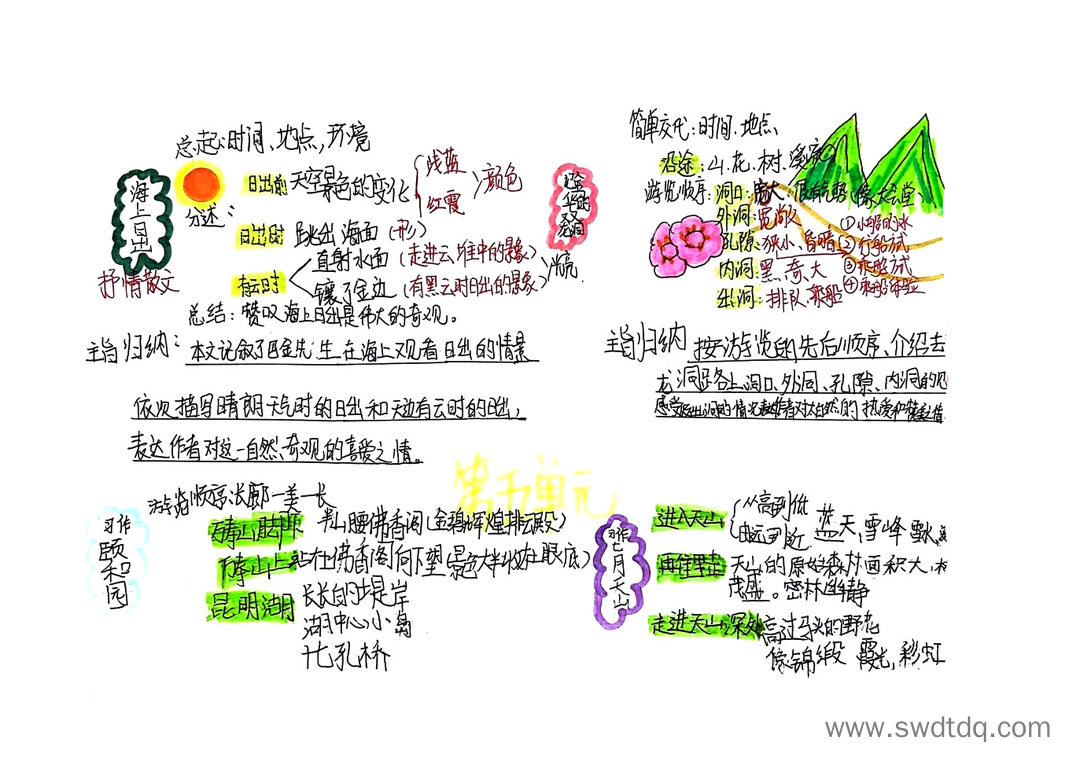 海上日出
抒情散文
总起:时间、地点、环境
分述:
日出前 天空景色的变化 浅蓝 红霞 颜色
日出时 跳出海面(形)
有云时 直射水面(走进云堆中的景象)
镶了金边(有黑云时日出的景象)
总结:赞叹海上日出是伟大的奇观。
主旨归纳:本文记叙了巴金先生在海上观看日出的情景
依次描写晴朗天气时的日出和天边有云时的日出,
表达作者对这一自然奇观的喜爱之情。
简单交代:时间、地点
沿途:山、花、树、溪流
游览顺序:洞口:
外洞:宽敞
孔隙:狭小、昏暗
内洞:黑、奇、大
出洞:排队、乘船
②行船方式
③乘船方式
④乘船体验
主旨归纳 按游览的先后顺序、介绍去
龙洞 路上、洞口、外洞、孔隙、内洞的见
第五单元
习作
颐和园
游览顺序:长廊一美一长
万寿山脚下 半山腰佛香阁(金碧辉煌排云殿)
万寿山上 站在佛香阁向下望(景色大半收在眼底)
昆明湖 长长的堤岸
湖中心小岛
十七孔桥
习作
七月天山
进入天山 从高到低 由远到近 蓝天,雪峰
再往里走 天山的原始森林面积大,
茂盛。密林幽静
走进天山深处 高过马头的野花
像锦缎 霞光,彩虹
www.swdtdq.com